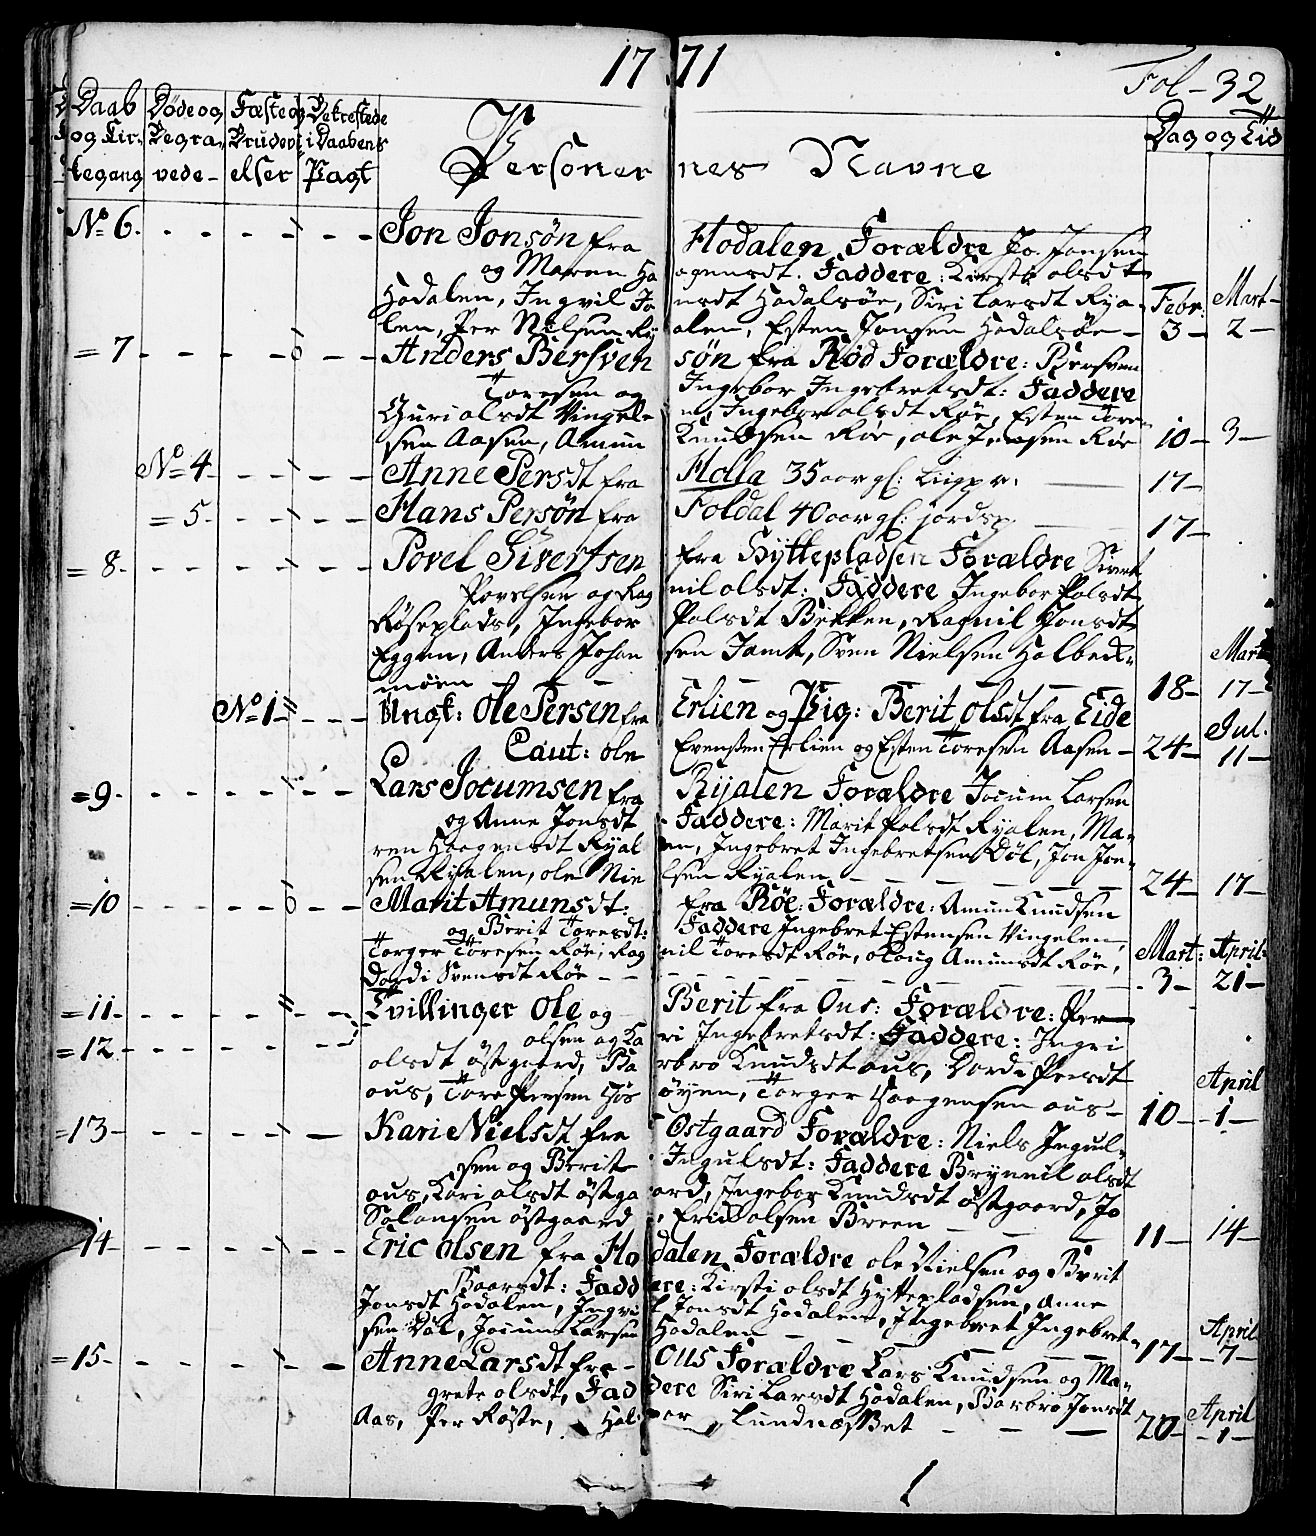 1771
Fol - 32
Daab og Kirkegang
Døde og Begravede -
Fæste og Brudevielser
De trestede i Daabens Pagt
Personernes Navne
Dag og Tid
No 6. Jon Jonsøn fra Hodalen Forældre Jo. Jonsen
og Maren Haagensdt. Faddere: Kirsti olsdt
Hodalen, Ingvil Jonsdt Hodalsøe, Siri Larsdt Rya-
len, Per Nilsen Ryalen, Esten Jonsen Hodalsøe - Febr: 3 - Mart - 2 -
= 7 Anders Bersvensøn fra Rød Forældre: Bersven
Toresen og Ingebor Ingebretsdt: Faddere
Guri olsdt Vingelen, Ingebor olsdt Røe, Esten Tore-
sen Aasen, Amun Knudsen Røe, ole Jensen Røe 10 - 3 -
No 4 Anne Persdt fra Holla 35 aar gl: Liigpr. 17 -
= 5 Hans Persøn fra Foldal 40 aar gl: jordsp. 17 -
= 8 Povel Sivertsen fra Hyttepladsen Forældre Sivert
Povelsen og Ragnil olsdt: Faddere Ingebor Polsdt
Røseplads, Ingebor Polsdt Bekken, Ragnil Jonsdt
Eggen, Anders Johansen Jamt, Sven Nielsen Holbek-
moen 18 - Mart 17 -
No 1 Ungk: Ole Persen fra Erlien og Pig: Berit olsdt fra Eide
Caut: ole Evensen Erlien og Esten Toresen Aasen - 24 - Jul. 11 -
= 9 Lars Jocumsen fra Ryalen Forældre Jocum Larsen
og Anne Jonsdt Faddere: Marit Polsdt Ryalen, Ma-
ren Haagensdt Ryalen, Ingebret Ingebretsen Døl, Jon Jon-
sen Ryalen, ole Nielsen Ryalen 24 - 17 -
= 10 Marit Amunsdt: fra Røe: Forældre: Amun Knudsen
og Berit Toresdt: Faddere Ingebret Estensen Vingelen,
Torger Toresen Røe, Ragnil Toresdt Røe, oloug Amunsdt Røe,
Dordi Svensdt Røe - - Mart: 3 - April: 21 -
= 11 Tvillinger Ole og Berit fra Ous: Forældre: Per
= 12 olsen og Kari Ingebretsdt: Faddere: Ingri
olsdt østgaard, Barbro Knudsdt ous, Dordi Persdt
ous, Tore Persen Høsøyen, Torger Haagensen ous - 10 - April 1 -
= 13 Kari Nielsdt fra Østgaard Forældre: Niels Ingul-
sen og Berit Ingulsdt: Faddere Brynnil olsdt
ous, Kari olsdt østgaard, Ingebor Knudsdt østgaard, Jo
Salamsen østgaard, Erick olsen Breen 11 - 14 -
14 Eric Olsen fra Hodalen Forældre ole Nielsen og Berit
Baarsdt: Faddere: Kirsti olsdt Hyttepladsen, Anne
Jonsdt Hodalen, Ingri Jonsdt Hodalen, Ingebret Ingebret-
sen Døl, Jocum Larsen Hodalen 17 - April 7 -
= 15 Anne Larsdt fra - Ous Forældre Lars Knudsen og Ma-
grete olsdt, Faddere Siri Larsdt Hodalen, Barbro Jonsdt
Aas, Per Røste, Halvor LundnæsBet 20 - April 1 -